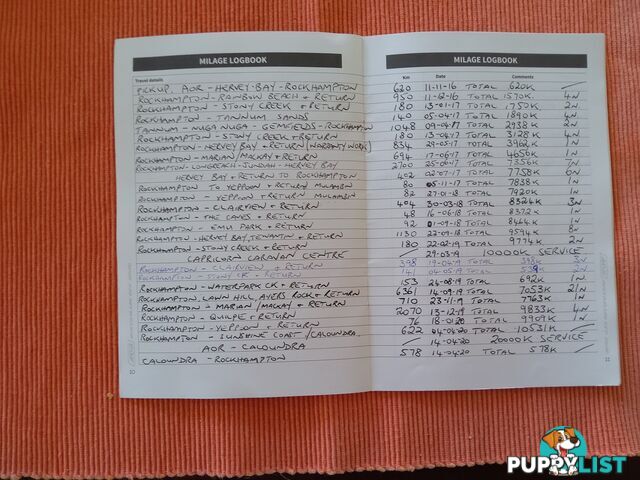 MILAGE LOGBOOK
Travel details
PICKUP, AOR - HERVEY-BAY - ROCKHAMPTON
ROCKHAMPTON - RAINBOW BEACH + RETURN
ROCKHAMPTON - STONY CREEK + RETURN
ROCKHAMPTON - TANNUM SANDS
TANNUM - NUGA NUGA - GEMFIELDS - ROCKHAMPTON
ROCKHAMPTON - STONY CREEK + RETURN
ROCKHAMPTON - HERVEY BAY + RETURN (WARRANTY WORK)
ROCKHAMPTON - MARIAN/MACKAY + RETURN
ROCKHAMPTON - LONGREACH - JUNDAH - HERVEY BAY
HERVEY BAY + RETURN TO ROCKHAMPTON
ROCKHAMPTON TO YEPPOON + RETURN MULAMBIN
ROCKHAMPTON - YEPPOON + RETURN MULAMBIN
ROCKHAMPTON - CLAIRVIEW + RETURN
ROCKHAMPTON - THE CAVES + RETURN
ROCKHAMPTON - EMU PARK + RETURN
ROCKHAMPTON - HERVEY BAY, + RETURN
ROCKHAMPTON - STONY CREEK + RETURN
CAPRICORN CARAVAN CENTRE
ROCKHAMPTON - CLAIRVIEW + RETURN
ROCKHAMPTON - STONY CK + RETURN
ROCKHAMPTON - WATERPARK CK + RETURN
ROCKHAMPTON, LAWN HILL, AYERS ROCK + RETURN
ROCKHAMPTON - MARIAN/MACKAY + RETURN
ROCKHAMPTON - QUILPE + RETURN
ROCKHAMPTON - YEPPOON + RETURN
ROCKHAMPTON - SUNSHINE COAST / CALOUNDRA
AOR - CALOUNDRA
CALOUNDRA - ROCKHAMPTON
10
MILAGE LOGBOOK
Km Date Comments
620 11-11-16 TOTAL 620K
950 11-12-16 TOTAL 1570K 4N
180 13-01-17 TOTAL 1750K 2N
140 05-04-17 TOTAL 1890K 4N
1048 09-04-17 TOTAL 2938K 2N
180 13-04-17 TOTAL 3128K 4N
834 29-05-17 TOTAL 3962K 1N
694 17-06-17 TOTAL 4656K 1N
2700 25-06-17 TOTAL 7356K 7N
402 02-07-17 TOTAL 7758K 6N
80 05-11-17 TOTAL 7838K 1N
82 27-01-18 TOTAL 7920K 1N
404 30-03-18 TOTAL 8324K 3N
48 16-06-18 TOTAL 8372K 1N
92 01-09-18 TOTAL 8464K 1N
1130 22-09-18 TOTAL 9594K 8N
180 22-02-19 TOTAL 9774K 2N
29-03-19 10000K SERVICE
398 19-04-19 TOTAL 398K 3N
141 04-05-19 TOTAL 539K 2N
153 24-08-19 TOTAL 692K 1N
6361 14-09-19 TOTAL 7053K 21N
710 23-11-19 TOTAL 7763K 1N
2070 13-12-19 TOTAL 9833K 4N
76 18-01-20 TOTAL 9909K 1N
622 04-04-20 TOTAL 10531K
14-04-20 20000K SERVICE
578 14-04-20 TOTAL 578K
11
PUPPYLIST
PUPPYLIST.COM.AU